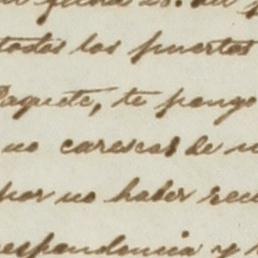 fecha 23. del
todos los puertos
Paquete, te pongo
no carescas de n
por no haber reci
respondencia y